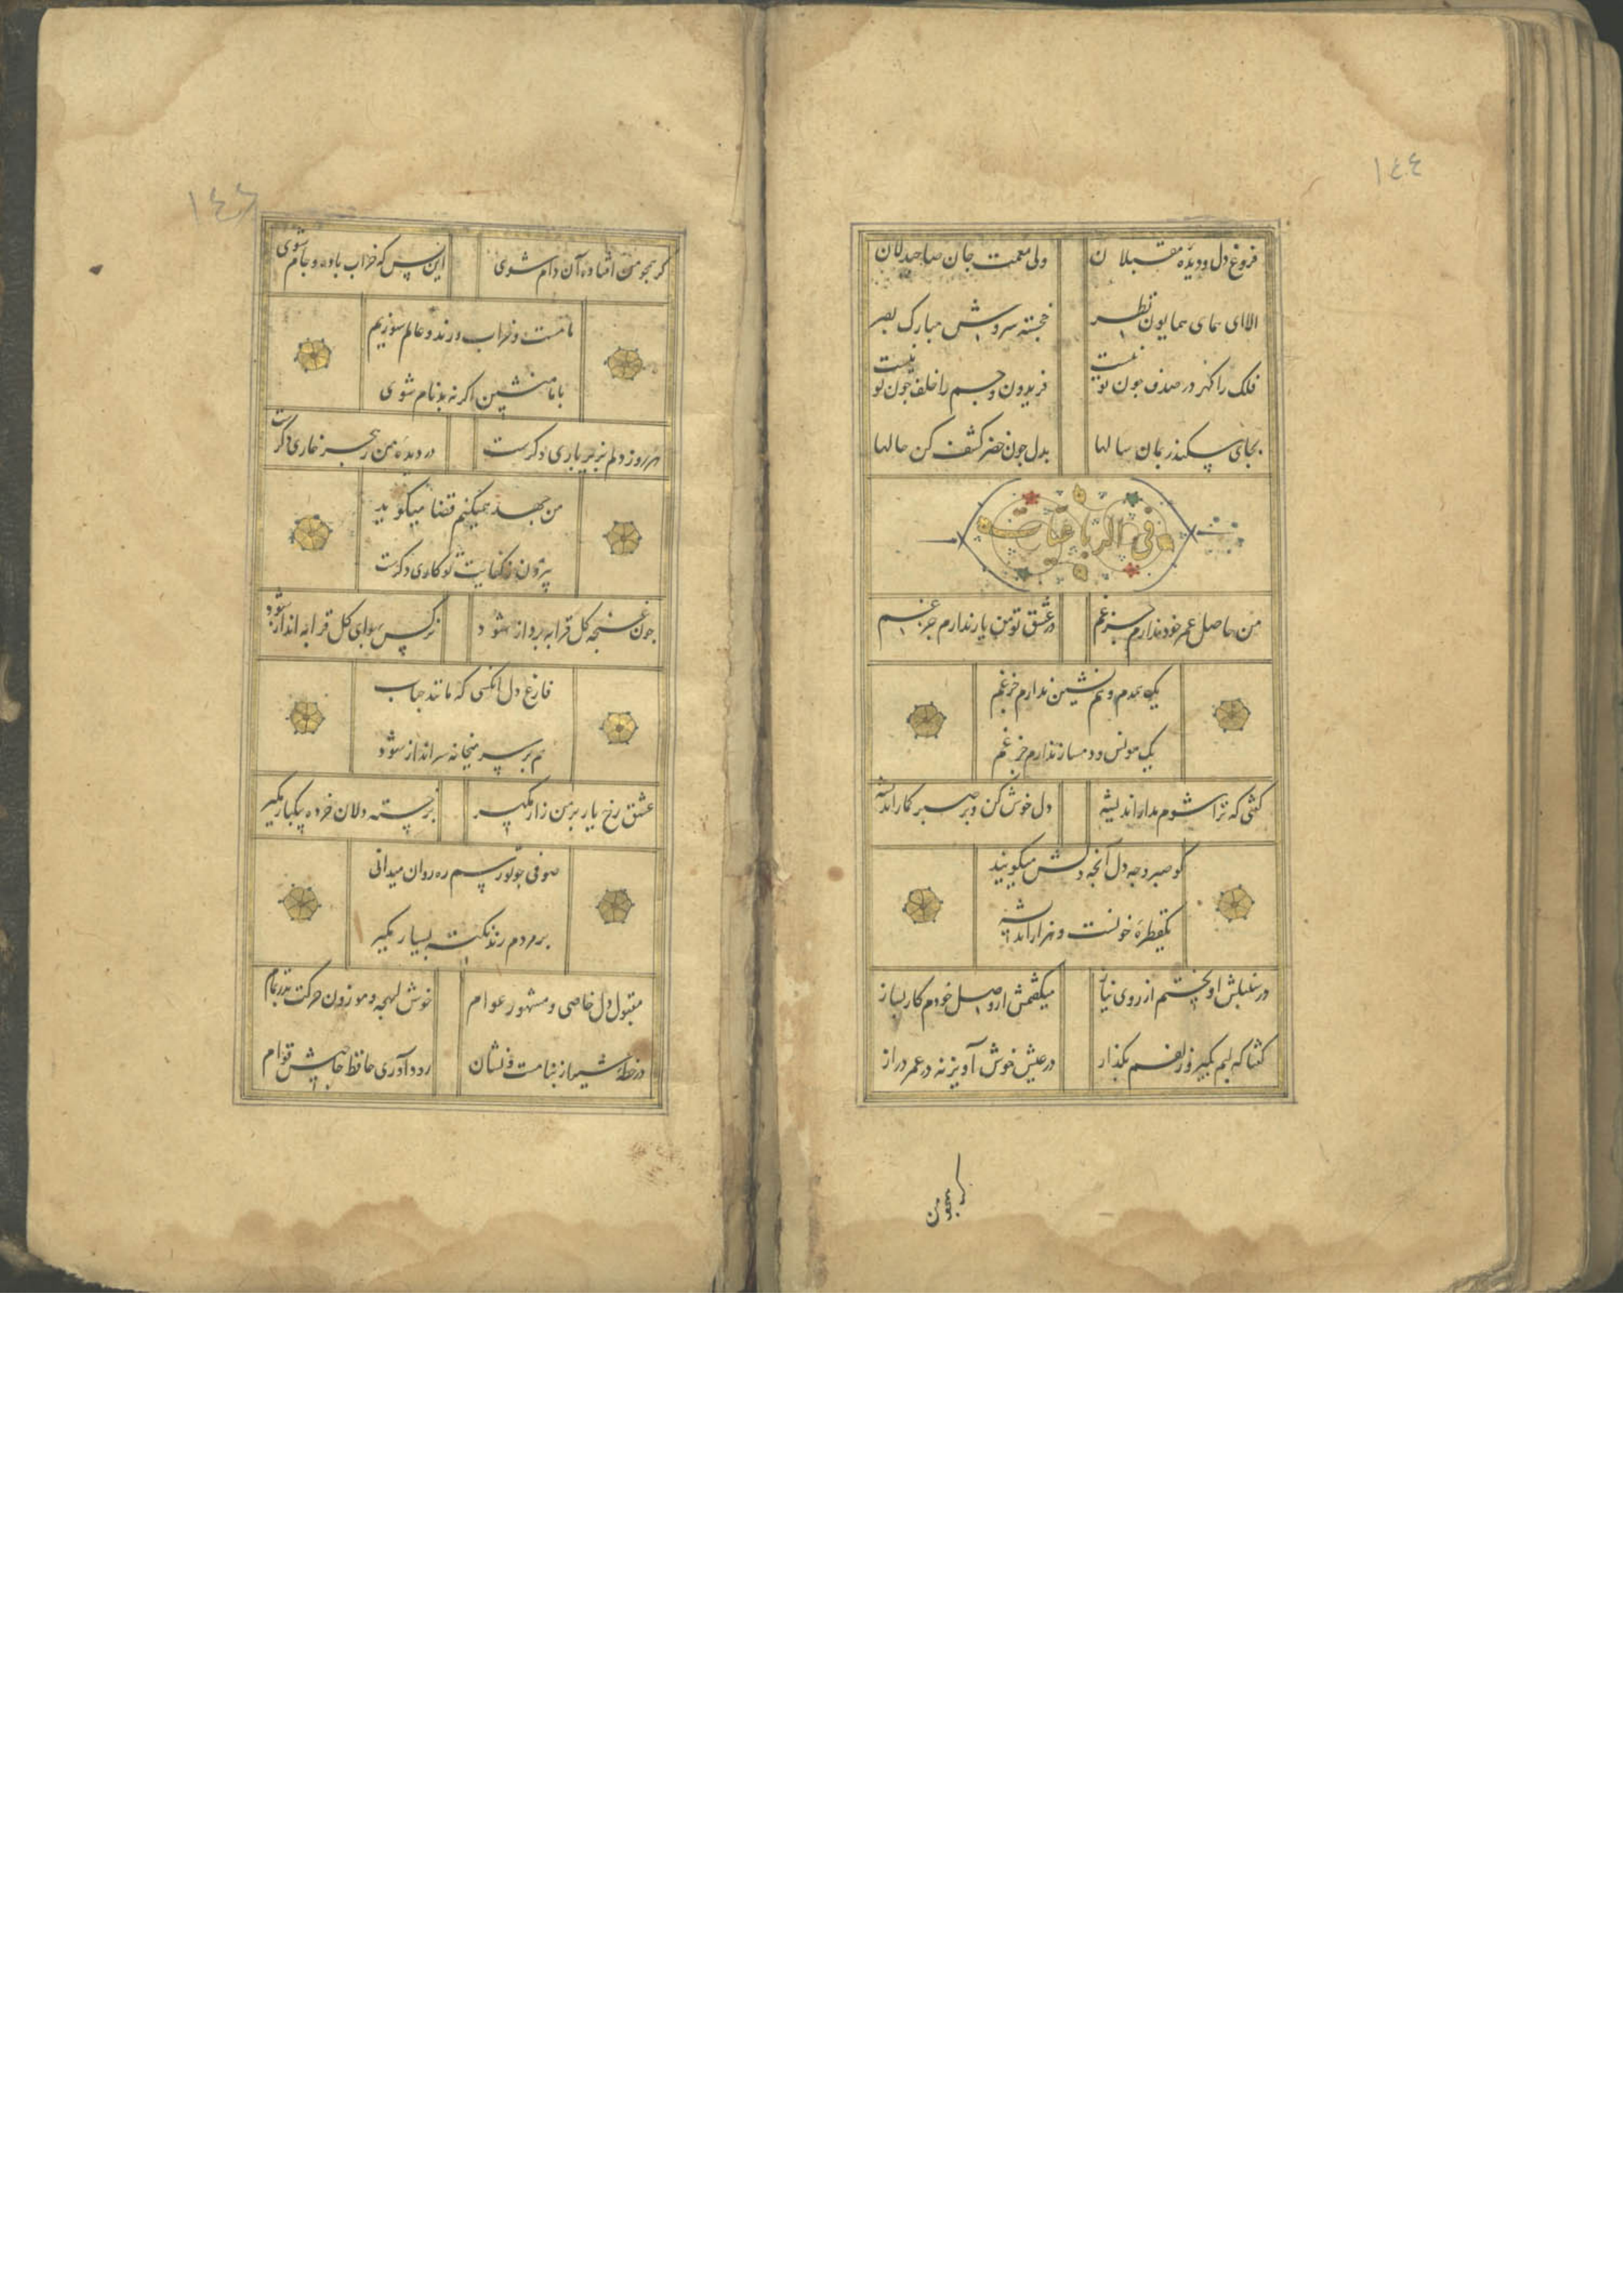 ١٤٤
فروغ دل و دیدهٔ مقبلان ولی نعمت جان صاحبدلان
الا ای همای همایون نظر خجسته سروش مبارک
فلک را کهر در صدف چون تو نیست فریدون و جم را خلف چون تو نیست
بجای سکندر بمان سالها بدل چون خضر کشف کن حالها
فی الرباعیات
من حاصل عمر خود ندارم جز غم در عشق تو من یار ندارم جز غم
یک همدم و هم نشین ندارم جز غم
یک مونس و دمساز ندارم جز غم
کفتی که ترا شوم مدار اندیشه دل خوش کن و بر صبر کمار اندیشه
کو صبر و چه دل آنچه دلش میکویند
یکقطرهٔ خونست و هزار اندیشه
در سنبلش آویختم از روی نیاز میکفتمش از وصل خودم کار بساز
کفتا که لبم بکیر و زلفم بکذار در عیش خوش آویز نه در عمر دراز
کر همچو من
کر همچو من افتادهٔ آن دام شوی این بس که خراب باده و جام شوی
ما مست و خراب و رند و عالم سوزیم
با ما منشین اکر نه بدنام شوی
هر روز دلم بزیر باری دکرست در دیدهٔ من ز هجر خاری دکرست
من جهد همیکنم قضا میکوید
بیرون ز کفایت تو کاری دکرست
چون غنچه کل قرابه پرداز شود نرکس بهوای کل قرابه انداز شود
فارغ دل انکسی که مانند حباب
هم بر سر میخانه سرانداز شود
عشق رخ یار بر من زار مکیر بر خسته دلان خرده بیکبار مکیر
صوفی چو تو رسم ره روان میدانی
بر مردم رند نکته بسیار مکیر
مقبول دل خاصی و مشهور عوام خوش لهجه و موزون حرکت بدر تمام
در خطهٔ شیراز بنامت و نشان رود آوری حافظ حاجی قوام